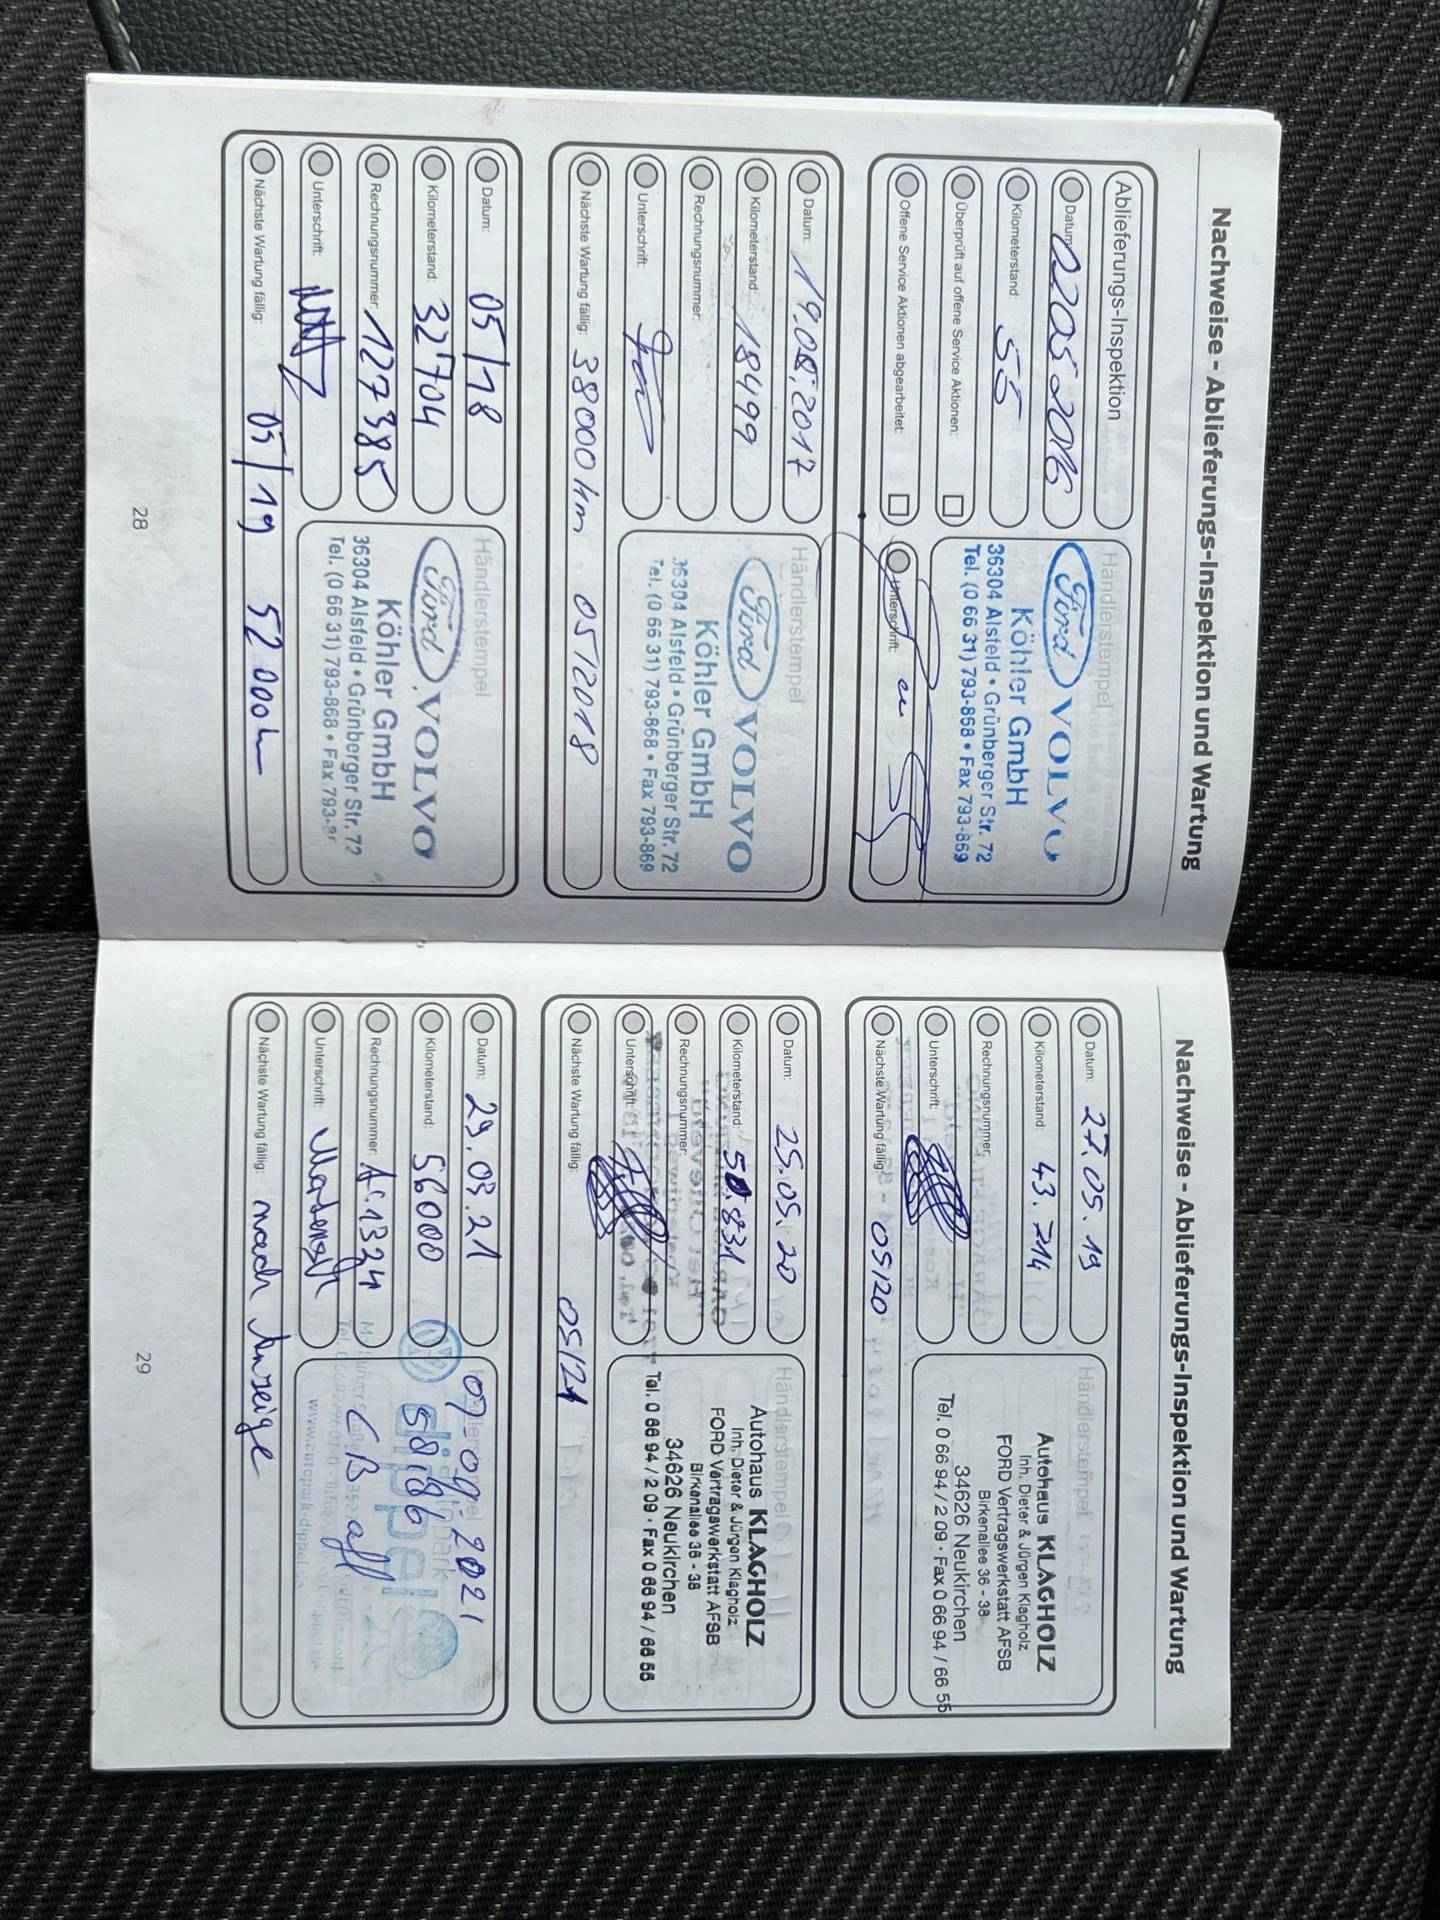 Nachweise - Ablieferungs-Inspektion und Wartung
Ablieferungs-Inspektion
Datum: 02052016
Kilometerstand: 55
Überprüft auf offene Service Aktionen:
Offene Service Aktionen abgearbeitet:
Händlerstempel
Ford VOLVO
Köhler GmbH
36304 Alsfeld • Grünberger Str. 72
Tel. (0 66 31) 793-868 • Fax 793-869
Unterschrift:
Datum: 19.08.2017
Kilometerstand: 18499
Rechnungsnummer:
Unterschrift:
Nächste Wartung fällig: 38000 km 05/2018
Händlerstempel
Ford VOLVO
Köhler GmbH
36304 Alsfeld • Grünberger Str. 72
Tel. (0 66 31) 793-868 • Fax 793-869
Datum: 05/18
Kilometerstand: 32704
Rechnungsnummer: 127385
Unterschrift:
Nächste Wartung fällig: 05/19 52000
Händlerstempel
Ford VOLVO
Köhler GmbH
36304 Alsfeld • Grünberger Str. 72
Tel. (0 66 31) 793-868 • Fax 793-
28
Nachweise - Ablieferungs-Inspektion und Wartung
Datum: 27.05.19
Kilometerstand: 43.714
Rechnungsnummer:
Unterschrift:
Nächste Wartung fällig: 05/20
Händlerstempel
Autohaus KLAGHOLZ
Inh. Dieter & Jürgen Klagholz
FORD Vertragswerkstatt AFSB
Birkenallee 36 - 38
34626 Neukirchen
Tel. 0 66 94 / 2 09 · Fax 0 66 94 / 66 55
Datum: 25.05.20
Kilometerstand: 50.831
Rechnungsnummer:
Unterschrift:
Nächste Wartung fällig: 05/21
Händlerstempel
Autohaus KLAGHOLZ
Inh. Dieter & Jürgen Klagholz
FORD Vertragswerkstatt AFSB
Birkenallee 36 - 38
34626 Neukirchen
Tel. 0 66 94 / 2 09 · Fax 0 66 94 / 66 55
Datum: 29.03.21
Kilometerstand: 56000
Rechnungsnummer: Ac.1324
Unterschrift:
Nächste Wartung fällig: nach Anzeige
07.09.2021
58186
dippel
29